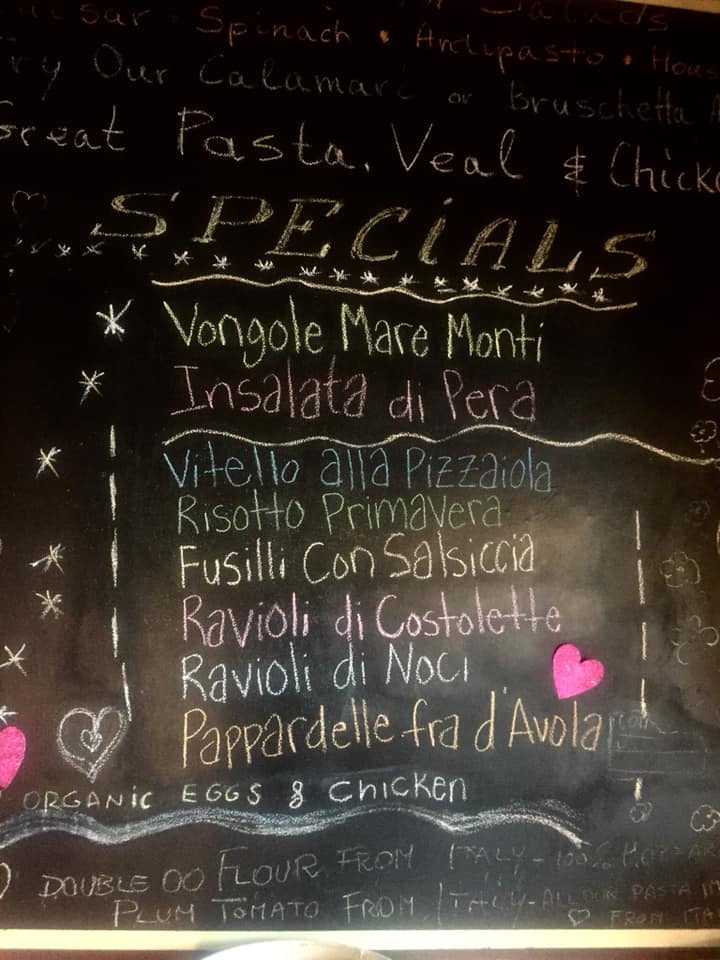 Salads
Spinach • Antipasto •
Our Calamari or Bruschetta
Great Pasta, Veal & Chick
SPECiALS
Vongole Mare Monti
Insalata di Pera
Vitello alla Pizzaiola
Risotto Primavera
Fusilli Con Salsiccia
Ravioli di Costolette
Ravioli di Noci
Pappardelle fra d'Avola
ORGANiC EGGS & CHicKEN
DOUBLE 00 FLOUR FROM ITALY - 100%
PLUM TOMATO FROM ITALY - ALL OUR PASTA
FROM ITA